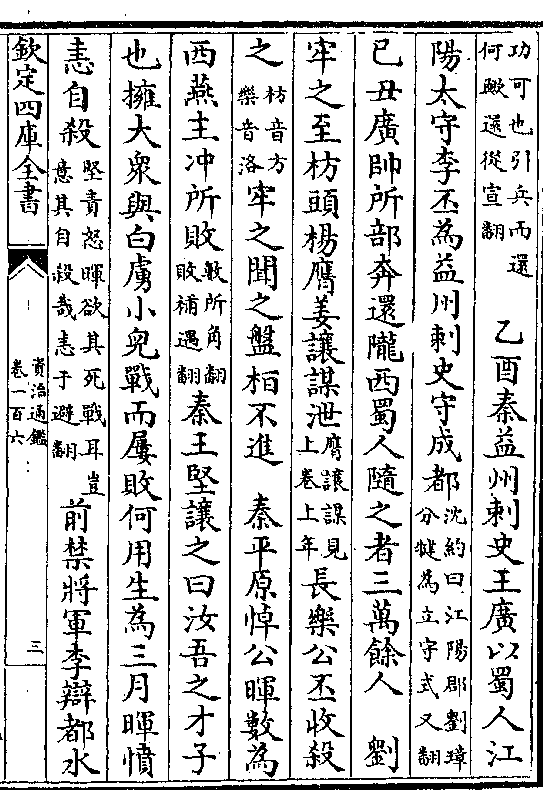 功可也引兵而還
何歟還從宣翻
乙酉秦益州刺史王廣以蜀人江
陽太守李丕為益州刺史守成都
沈約曰江陽郡劉璋
分犍為立守式又翻
己丑廣帥所部奔還隴西蜀人隨之者三萬餘人　劉
牢之至枋頭楊膺姜讓謀泄
膺讓謀見
上卷上年
長樂公丕收殺
之
枋音方
樂音洛
牢之聞之盤桓不進　秦平原悼公暉數為
西燕主冲所敗
數所角翻
敗補邁翻
秦王堅讓之曰汝吾之才子
也擁大衆與白虜小兒戰而屢敗何用生為三月暉憤
恚自殺
堅責怒暉欲其死戰耳豈
意其自殺哉恚于避翻
前禁將軍李辯都水
欽定四庫全書
資治通鑑
卷一百六
三